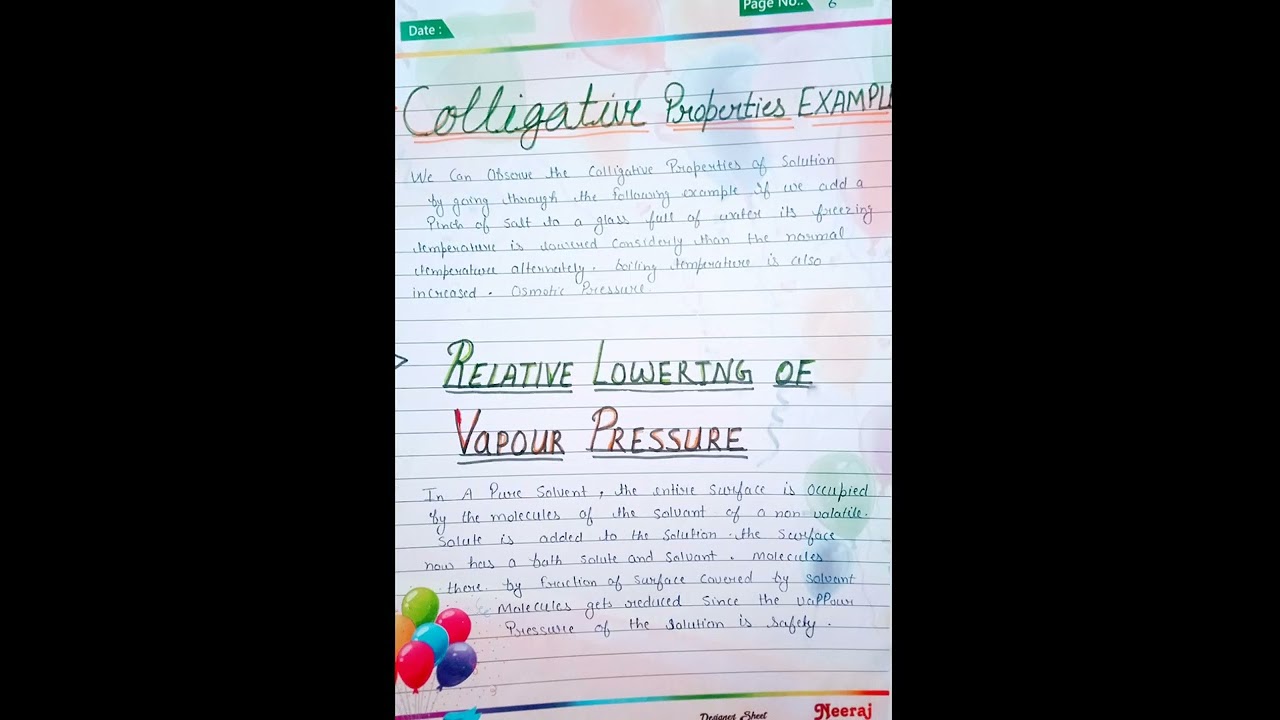 Page No.: 6
Date :
Colligative Properties EXAMPL
We Can Observe the Colligative Properties of Solution
by going through the following example if we add a
Pinch of salt to a glass full of water its freezing
temperature is lowered considerly than the normal
temperature alternately. boiling temperature is also
increased. Osmotic Pressure.
>
RELATIVE LOWERING OF
VAPOUR PRESSURE
In A Pure Solvent, the entire surface is occupied
by the molecules of the solvant of a non volatile.
Solute is added to the solution. the surface
now has a bath solute and solvant. molecules
there. by fraction of surface covered by solvant
Molecules gets reduced since the vappour
Pressure of the solution is safety.
Designer Sheet
Neeraj